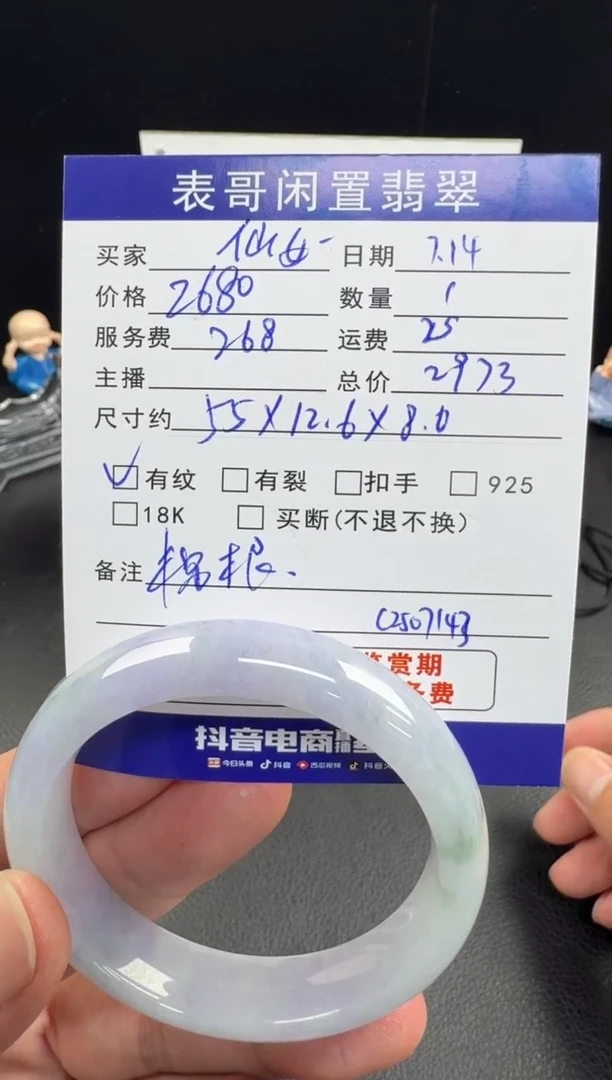 表哥闲置翡翠
买家 仙女一 日期 7.14
价格 2680 数量 1
服务费 268 运费 25
主播 总价 2973
尺寸约 55X12.6X8.0
有纹 有裂 扣手 925
18K 买断(不退不换)
备注 棉根.
鉴赏期
务费
抖音电商 直播
今日头条 抖音 西瓜视频 抖音火